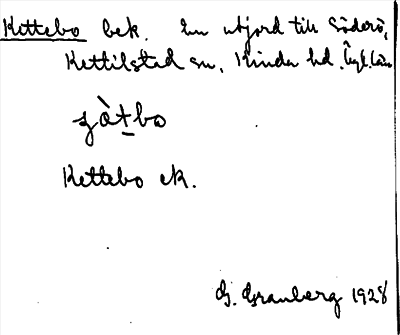 Kettebo bek. En utjord till Söderö,
Kettilstad sn, Kinda hd. Ögl. län
Kettebo ek.
G. Granberg 1928